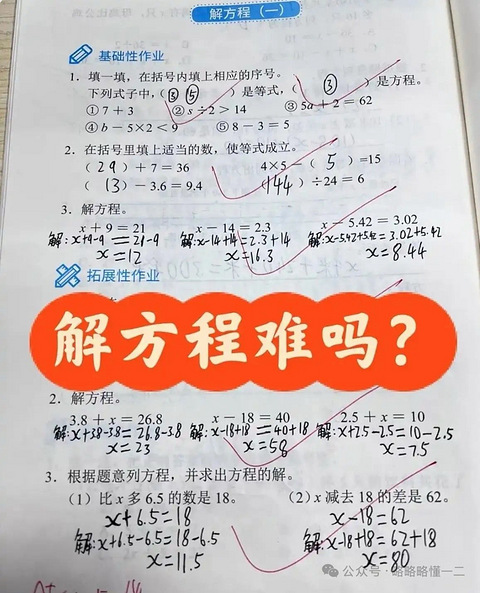 解方程(一)
基础性作业
1. 填一填，在括号内填上相应的序号。
下列式子中，(③⑤)是等式，(③)是方程。
①7+3 ②s÷2>14 ③5a+2=62
④b-5×2<9 ⑤8-3=5
2. 在括号里填上适当的数，使等式成立。
(29)+7=36 4×5-(5)=15
(13)-3.6=9.4 (144)÷24=6
3. 解方程。
x+9=21 x-14=2.3 x-5.42=3.02
解:x+9-9=21-9 解:x-14+14=2.3+14 解:x-5.42+5.42=3.02+5.42
x=12 x=16.3 x=8.44
拓展性作业
解方程难吗?
2. 解方程。
3.8+x=26.8 x-18=40 2.5+x=10
解:x+3.8-3.8=26.8-3.8 解:x-18+18=40+18 解:x+2.5-2.5=10-2.5
x=23 x=58 x=7.5
3. 根据题意列方程，并求出方程的解。
(1)比x多6.5的数是18。 (2)x减去18的差是62。
x+6.5=18 x-18=62
解:x+6.5-6.5=18-6.5 解:x-18+18=62+18
x=11.5 x=80
公众号·略略略懂一二